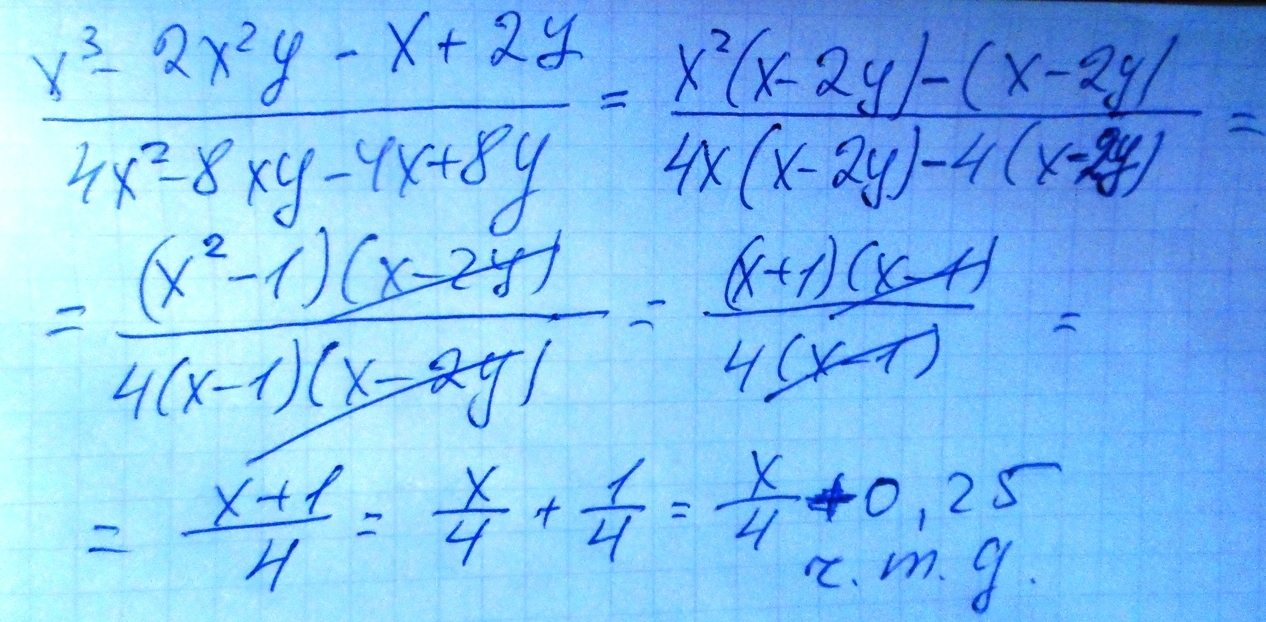 (x³ - 2x²y - x + 2y)/(4x² - 8xy - 4x + 8y) = (x²(x - 2y) - (x - 2y))/(4x(x - 2y) - 4(x - 2y)) =
= ((x² - 1)(x - 2y))/(4(x - 1)(x - 2y)) = ((x + 1)(x - 1))/(4(x - 1)) =
= (x + 1)/4 = x/4 + 1/4 = x/4 + 0,25
ч.т.д.